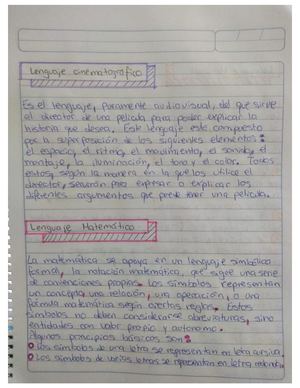 Lenguaje cinematografico
Es el lenguaje, puramente audiovisual, del que sirve
el director de una pelicula para poder explicar la
historia que desea, Este lenguaje esta compuesto
por la superposición de los siguientes elementos:
el espacio, el ritmo, el movimiento, el sonido, el
montaje, la iluminación, el tono y el color. Todos
estos, según la manera en la que los utilice el
director, servirán para explicar o explicar los
diferentes argumentos que puede tener una pelicula.
Lenguaje Matemático
La matemática se apoya en un lenguaje simbólico
formal, la notación matemática, que sigue una serie
de convenciones propias. Los símbolos representan
un concepto, una relación, una operación, o una
formula matemática según ciertas reglas. Estos
símbolos no deben considerarse abreviaturas, sino
entidades con valor propio y autonomo.
Algunos principios básicos son:
Los símbolos de una letra se representan en letra cursiva.
Los símbolos de varias letras se representan en letra redonda.